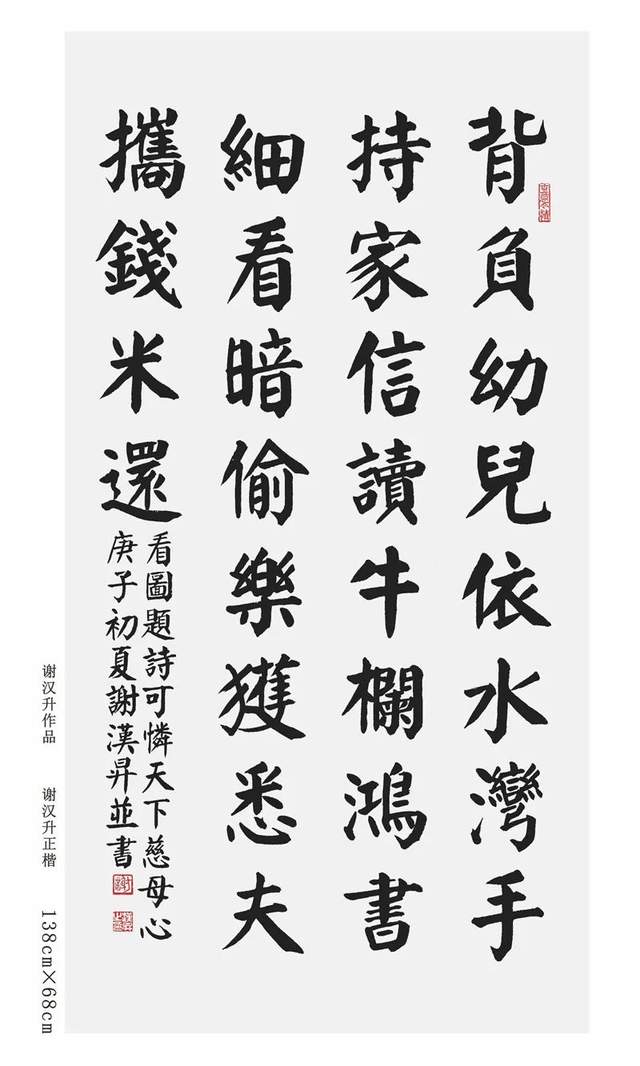 背負幼兒依水灣手
持家信讀牛欄鴻書
細看暗偷樂獲悉夫
攜錢米還
看圖題詩可憐天下慈母心
庚子初夏謝漢昇並書
谢汉升作品 谢汉升正楷 138cm×68cm